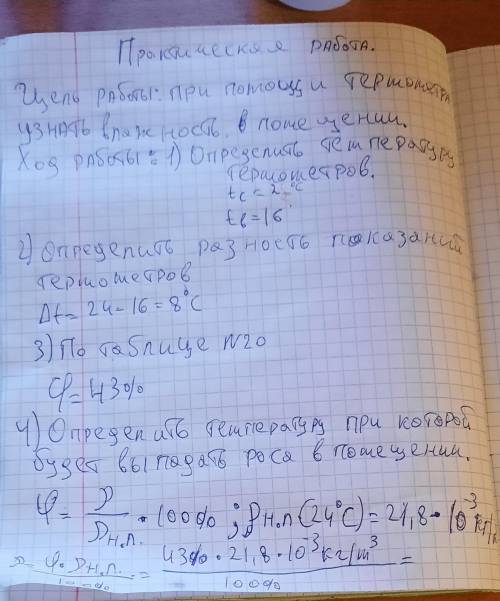 Практическая работа.
Цель работы: при помощи термометра
узнать влажность в помещении.
Ход работы: 1) Определить температуру
термометров.
tc = 2 °C
tв = 16
2) Определить разность показаний
термометров
Δt = 24 - 16 = 8°C
3) По таблице №20
φ = 43%
4) Определить температуру при которой
будет выпадать роса в помещении.
φ = ρ / ρн.п. · 100% ; ρн.п (24°C) = 21,8 · 10⁻³ кг/
ρ = φ · ρн.п. / 100% = 43% · 21,8 · 10⁻³ кг/m³ / 100% =